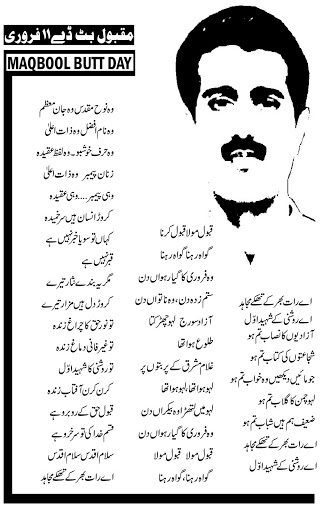 مقبول بٹ ڈے ۱۱ فروری
MAQBOOL BUTT DAY
اے رات بھر کے تھکے مجاہد
اے روشنی کے شہید اوّل
آزادیوں کا نصاب تم ہو
شجاعتوں کی کتاب تم ہو
جو مائیں دیکھیں وہ خواب تم ہو
لہو چمن کا گلاب تم ہو
ضعیف ہم ہیں شباب تم ہو
اے رات بھر کے تھکے مجاہد
اے روشنی کے شہید اوّل
قبول مولا قبول کرنا
گواہ رہنا، گواہ رہنا
وہ فروری کا گیارہواں دن
ستم زدہ دن، وہ ناتواں دن
آزاد سورج لہو چھڑکتا
طلوع ہوا تھا
غلام مشرق کے پربتوں پر
لہو ہوا تھا، لہو ہوا تھا
لہو میں لتھڑا وہ بیکراں دن
وہ فروری کا گیارہواں دن
قبول مولا قبول مولا
گواہ رہنا، گواہ رہنا
وہ نوح مقدس وہ جان معظم
وہ نام افضل وہ ذات اعلیٰ
وہ حرف خوشبو۔ وہ لفظ عقیدہ
زنان پیمبر وہ ذات اعلیٰ
وہی پیمبر.... وہی عقیدہ
کروڑ انسان ہیں سر خمیدہ
کہاں تو سویا خبر نہیں ہے
قبر نہیں ہے
مگر یہ بندے نثار تیرے
کروڑ دل ہیں مزار تیرے
تو نور حق کا چراغ زندہ
تو غیر فانی دماغ زندہ
تو روشنی کا شہید اوّل
کرن کرن آفتاب زندہ
قبول حق کے روبرو ہے
قسم خدا کی تو سرخرو ہے
سلام اقدس سلام اقدس
اے رات بھر کے تھکے مجاہد